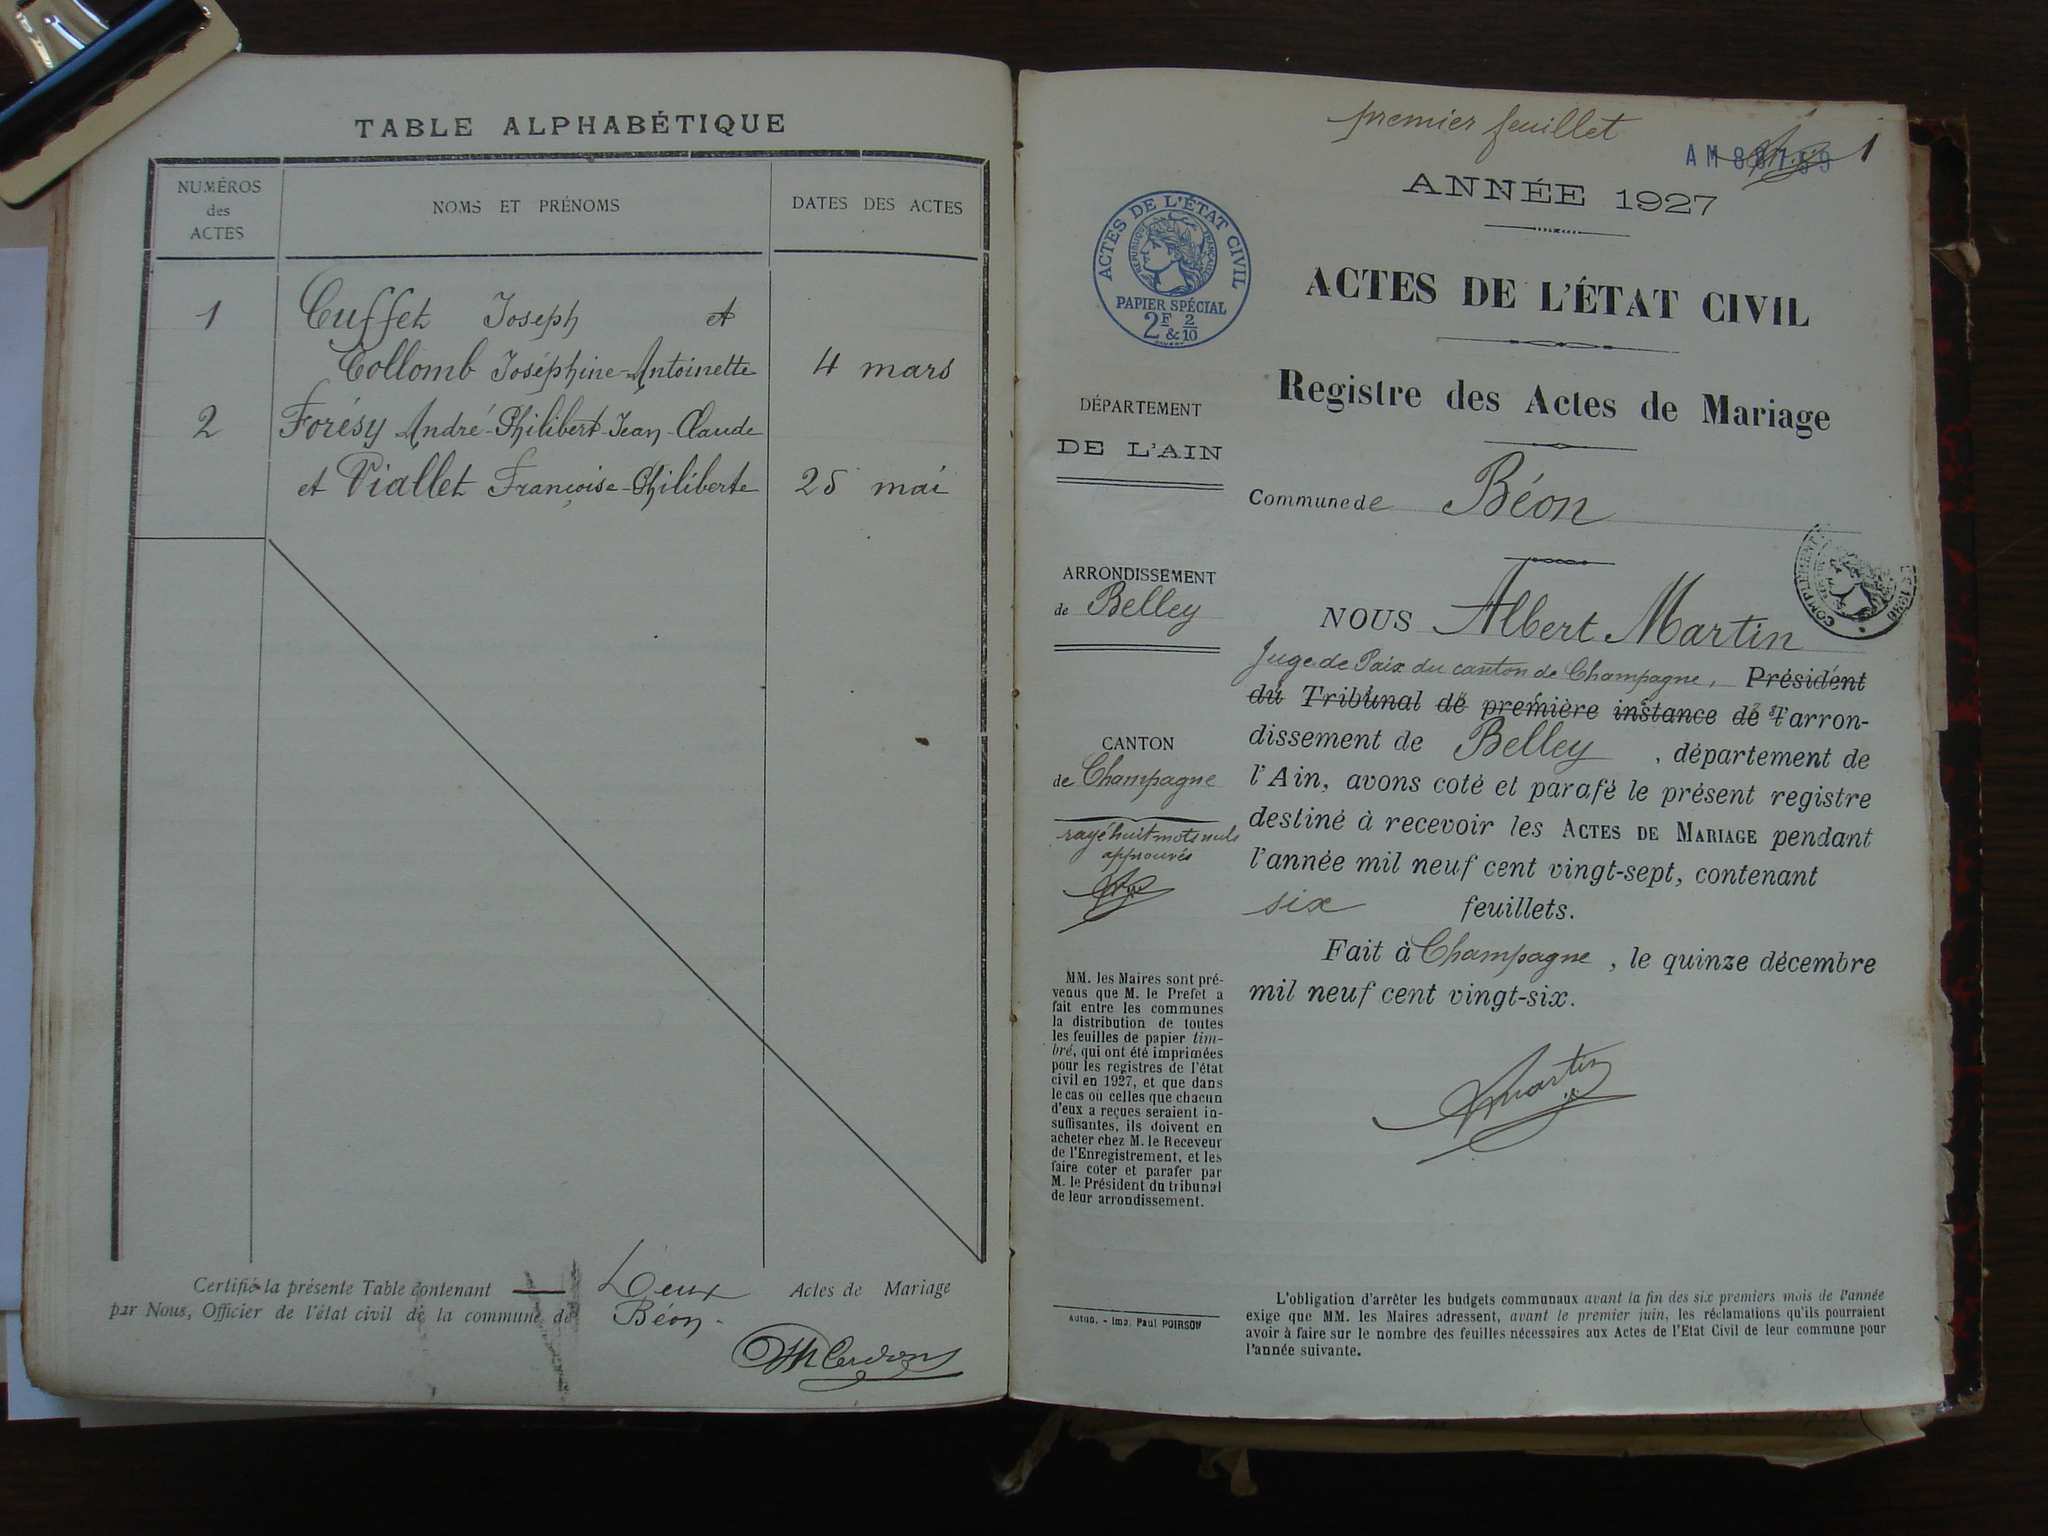 TABLE ALPHABÉTIQUE
NUMÉROS
des
ACTES
NOMS ET PRÉNOMS
DATES DES ACTES
1 Cuffet Joseph et
Collomb Joséphine-Antoinette 4 mars
2 Forésy André-Philibert-Jean-Claude
et Viallet Françoise-Philiberte 25 mai
Certifié la présente Table contenant Deux Actes de Mariage
par Nous, Officier de l'état civil de la commune de Béon.
premier feuillet
1
AM
ANNÉE 1927
ACTES DE L'ÉTAT CIVIL
RÉPUBLIQUE FRANÇAISE
PAPIER SPÉCIAL
2F & 2/10
ACTES DE L'ÉTAT CIVIL
Registre des Actes de Mariage
DÉPARTEMENT
DE L'AIN
Commune de Béon
ARRONDISSEMENT
de Belley
CANTON
de Champagne
rayé huit mots nuls
approuvés
NOUS Albert Martin
Juge de Paix du canton de Champagne, Président
du Tribunal de première instance de l'arron-
dissement de Belley, département de
l'Ain, avons coté et parafé le présent registre
destiné à recevoir les ACTES DE MARIAGE pendant
l'année mil neuf cent vingt-sept, contenant
six feuillets.
Fait à Champagne, le quinze décembre
mil neuf cent vingt-six.
Martin
MM. les Maires sont pré-
venus que M. le Prefet a
fait entre les communes
la distribution de toutes
les feuilles de papier tim-
bré, qui ont été imprimées
pour les registres de l'état
civil en 1927, et que dans
le cas où celles que chacun
d'eux a reçues seraient in-
suffisantes, ils doivent en
acheter chez M. le Receveur
de l'Enregistrement, et les
faire coter et parafer par
M. le Président du tribunal
de leur arrondissement.
Autun. - Imp. Paul POIRSON
L'obligation d'arrêter les budgets communaux avant la fin des six premiers mois de l'année
exige que MM. les Maires adressent, avant le premier juin, les réclamations qu'ils pourraient
avoir à faire sur le nombre des feuilles nécessaires aux Actes de l'Etat Civil de leur commune pour
l'année suivante.